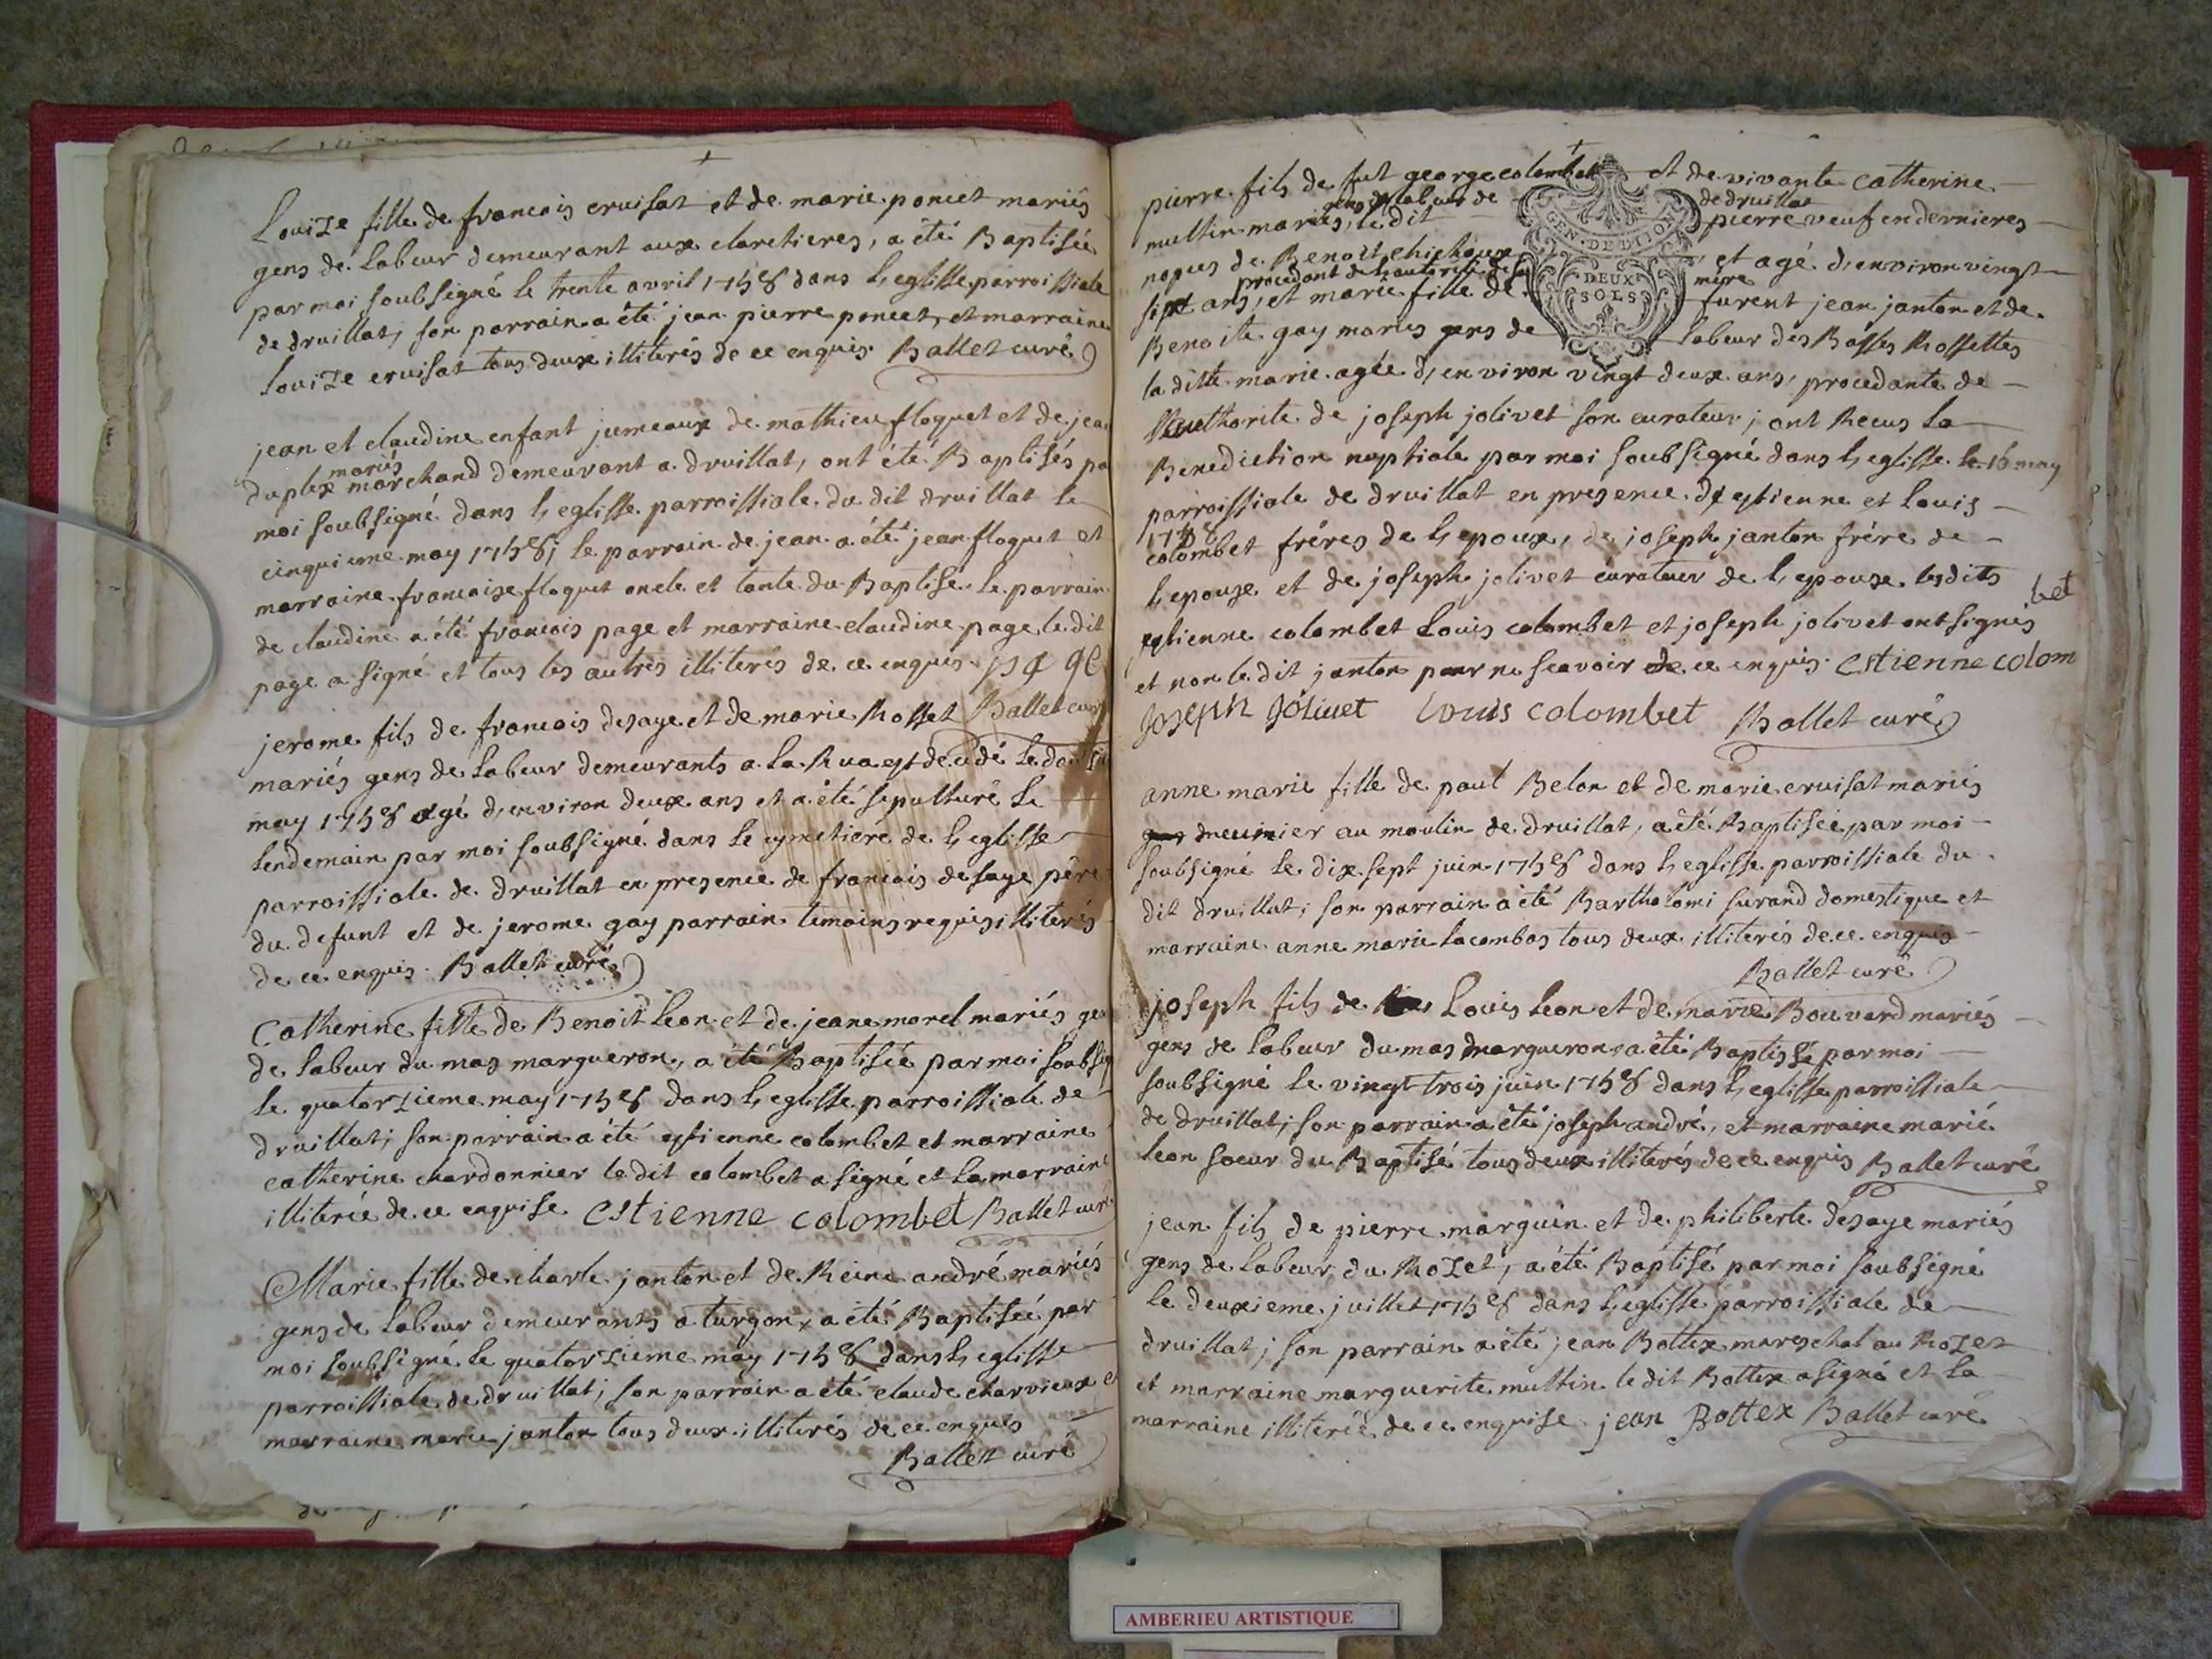 Louize fille de francois cruisat et de marie poncet mariés
gens de labeur demeurant aux claretieres, a été Baptisée
par moi soubsigné le trente avril 1758 dans L'eglisse parroissiale
de druillat, son parrain a été jean pierre poncet, et marraine
Louize cruisat tous deux illiterés de ce enquis Ballet curé
jean et claudine enfant jumeaux de mathieu floquet et de jea
mariés
duplex marchand demeurant a druillat, ont été Baptisés pa
moi soubsigné dans L'eglisse parroissiale du dit druillat le
cinquieme may 1758; le parrain de jean a été jean floquet et
marraine francoise floquet oncle et tante du Baptisé le parrain
de claudine a été francois page et marraine claudine page le dit
page a signé et tous les autres illiterés de ce enquis page
Ballet curé
jerome fils de francois desaye et de marie Rosset
mariés gens de labeur demeurants a la Rua est decedé le
may 1758 agé d'environ deux ans et a été sepulturé le
lendemain par moi soubsigné dans le cymetiere de L'eglisse
parroissiale de druillat en presence de francois desaye père
du defunt et de jerome gay parrain temoins requis illiterés
de ce enquis Ballet curé
Catherine fille de Benoit Leon et de jeane morel mariés gen
de labeur du mas margueron, a été Baptisée par moi soubsig
le quatorzieme may 1758 dans L'eglisse parroissiale de
druillat; son parrain a été estienne colombet et marraine
catherine chardonnier le dit colombet a signé et la marraine
illiterée de ce enquise Estienne colombet Ballet curé
Marie fille de charle janton et de Reine andré mariés
gens de labeur demeurants a turgon, a été Baptisée par
moi soubsigné le quatorzieme may 1758 dans L'eglisse
parroissiale de druillat; son parrain a été claude charvieux et
marraine marie janton tous deux illiterés de ce enquis
Ballet curé
pierre fils de fut george colombet et de vivante catherine
gens de labeur de de druillat
multin mariés, le dit pierre veuf en dernieres
nopces de Benoit chichoux et agé d'environ vingt
procedant de L'autorité de sa mère
sept ans, et marie fille de furent jean janton et de
Benoite gay mariés gens de labeur des Basses Rossettes
la ditte marie agée d'environ vingt deux ans, procedante de
L'authorite de joseph jolivet son curateur; ont Recus la
Benediction nuptiale par moi soubsigné dans L'eglisse le 16 may
parroissiale de druillat en presence d'estienne et Louis
1758
colombet fréres de L'epoux, de joseph janton frére de
L'epouse et de joseph jolivet curateur de L'epouse lesdits
estienne colombet Louis colombet et joseph jolivet ont signés
et non le dit janton pour ne scavoir de ce enquis Estienne colom
bet
joseph jolivet Louis colombet Ballet curé
anne marie fille de paul Belon et de marie cruisat mariés
meunier au moulin de druillat, a été Baptisée par moi
soubsigné le dix sept juin 1758 dans L'eglisse parroissiale du
dit druillat; son parrain a été Bartholomi surand domestique et
marraine anne marie lacombas tous deux illiterés de ce enquis
Ballet curé
joseph fils de Louis Leon et de marie Bouvard mariés
gens de labeur du mas margueron a été Baptissé par moi
soubsigné le vingt trois juin 1758 dans L'eglisse parroissiale
de druillat; son parrain a été joseph andré, et marraine marie
Leon soeur du Baptisé tous deux illiterés de ce enquis Ballet curé
jean fils de pierre marguin et de philiberte desaye mariés
gens de labeur du Rozet, a été Baptisé par moi soubsigné
le deuxieme juillet 1758 dans L'eglisse parroissiale de
druillat; son parrain a été jean Bottex mareschal au Rozet
et marraine marguerite multin le dit Bottex a signé et la
marraine illiterée de ce enquise jean Bottex Ballet curé
GEN. DE DIJON
DEUX
SOLS
AMBERIEU ARTISTIQUE